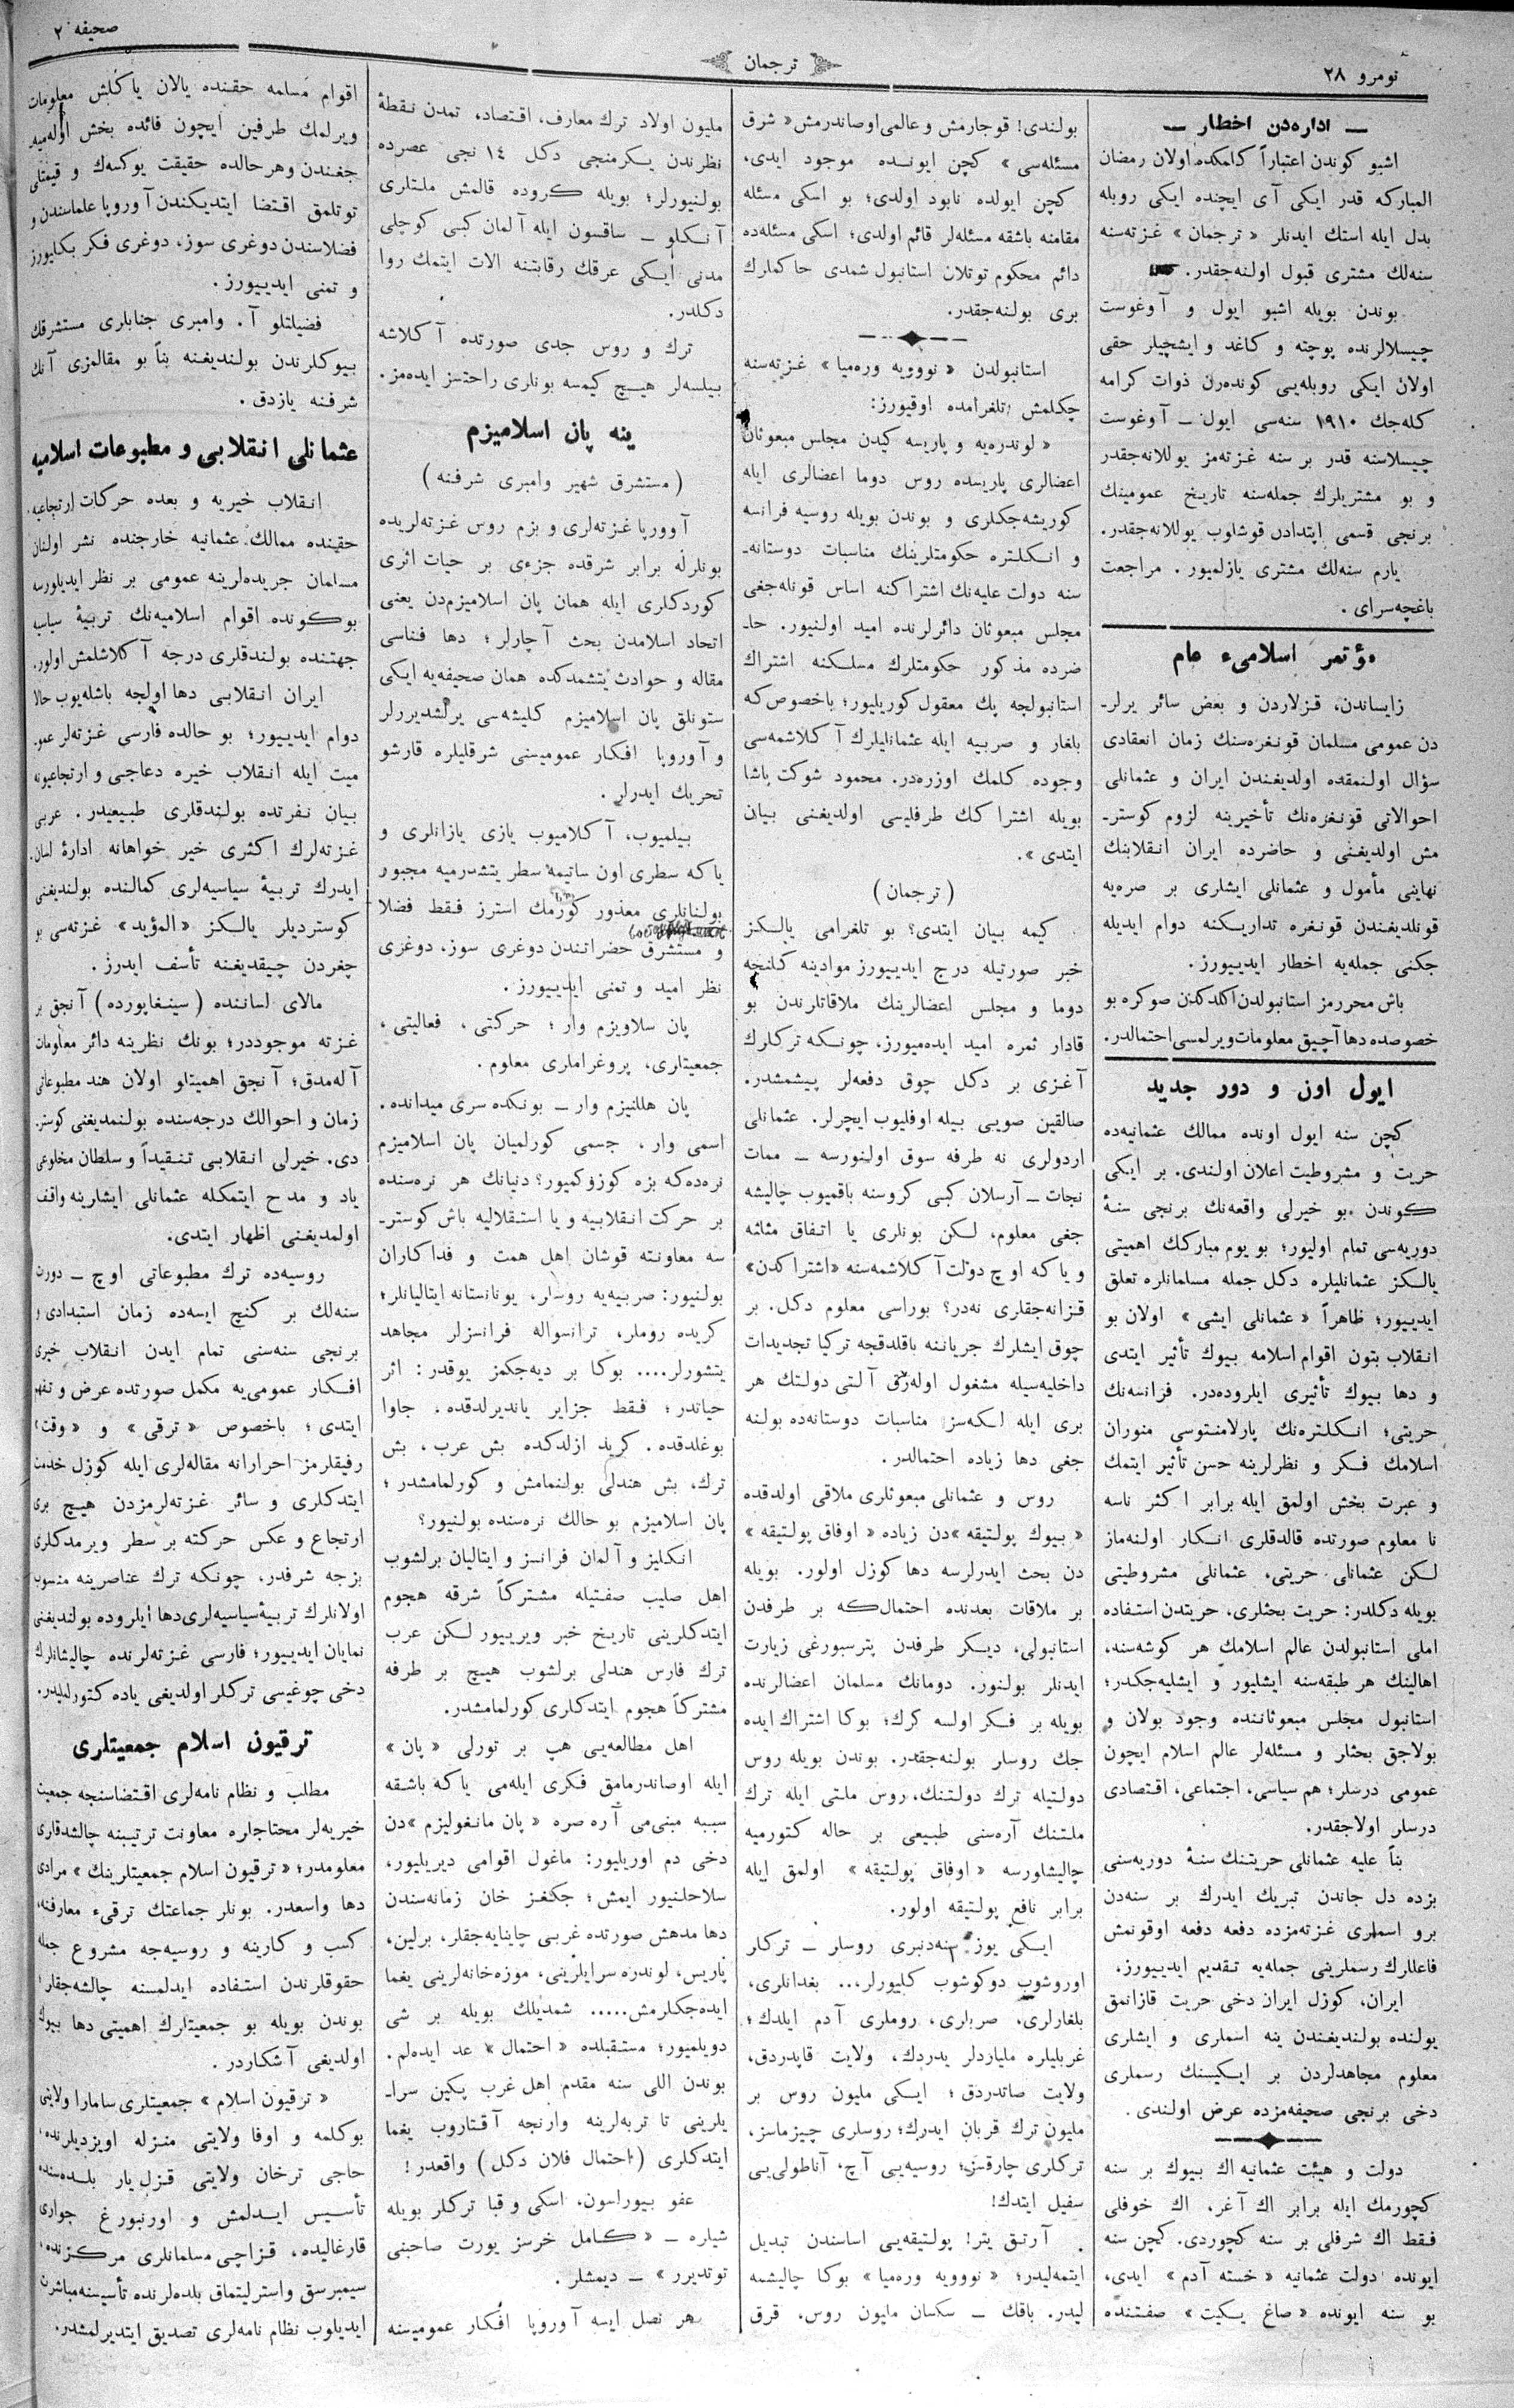 نومرو ٢٨
ترجمان
صحیفه ٢
— اداره‌دن اخطار —
اشبو كوندن اعتباراً كلمكده اولان رمضان
المباركه قدر ایكی آی ایچنده ایكی روبله
بدل ایله استك ایدنلر « ترجمان » غزته‌سنه
سنه‌لك مشتری قبول اولنه‌جقدر.
بوندن بویله اشبو ایول و آوغوست
چیسلالرنده پوچته و كاغد و ایشچیلر حقی
اولان ایكی روبله‌یی كونده‌رن ذوات كرامه
كله‌جك ١٩١٠ سنه‌سی ایول — آوغوست
چیسلاسنه قدر بر سنه غزته‌مز یوللانه‌جقدر
و بو مشتریلرك جمله‌سنه تاریخ عمومینك
برنجی قسمی ابتدادن قوشاوب یوللانه‌جقدر.
یارم سنه‌لك مشتری یازلمیور. مراجعت
باغچه‌سرای.
مؤتمر اسلامیء عام
زایساندن، قزلاردن و بعض سائر یرلر-
دن عمومی مسلمان قونغره‌سنك زمان انعقادی
سؤال اولنمقده اولدیغندن ایران و عثمانلی
احوالاتی قونغره‌نك تأخیرینه لزوم كوستر-
مش اولدیغنی و حاضرده ایران انقلابنك
نهاینی مأمول و عثمانلی ایشلری بر صره‌یه
قونلدیغندن قونغره تداریكنه دوام ایدیله
جكنی جمله‌یه اخطار ایدییورز.
باش محررمز استانبولدن اكلدكدن صوكره بو
خصوصده دها آچیق معلومات ویرلمسی احتمالدر.
ایول اون و دور جدید
كچن سنه ایول اونده ممالك عثمانیه‌ده
حریت و مشروطیت اعلان اولندی. بر ایكی
كوندن بو خیرلی واقعه‌نك برنجی سنۀ
دوریه‌سی تمام اولیور؛ بو یوم مباركك اهمیتی
یالكز عثمانلیلره دكل جمله مسلمانلره تعلق
ایدییور؛ ظاهراً « عثمانلی ایشی » اولان بو
انقلاب بتون اقوام اسلامه بیوك تأثیر ایتدی
و دها بیوك تأثیری ایلروده‌در. فرانسه‌نك
حریتی؛ انكلتره‌نك پارلامنتوسی منوران
اسلامك فكر و نظرلرینه حسن تأثیر ایتمك
و عبرت بخش اولمق ایله برابر اكثر ناسه
نا معلوم صورتده قالدقلری انكار اولنه‌ماز
لكن عثمانلی حریتی، عثمانلی مشروطیتی
بویله دكلدر: حریت بحثلری، حریتدن استفاده
املی استانبولدن عالم اسلامك هر كوشه‌سنه،
اهالینك هر طبقه‌سنه ایشلیور و ایشلیه‌جكدر؛
استانبول مجلس مبعوثاننده وجود بولان و
بولاجق بحثلر و مسئله‌لر عالم اسلام ایچون
عمومی درسلر؛ هم سیاسی، اجتماعی، اقتصادی
درسلر اولاجقدر.
بناً علیه عثمانلی حریتنك سنۀ دوریه‌سنی
بزده دل جاندن تبریك ایدرك بر سنه‌دن
برو اسملری غزته‌مزده دفعه دفعه اوقونمش
فاعللرك رسملرینی جمله‌یه تقدیم ایدییورز.
ایران، كوزل ایران دخی حریت قازانمق
یولنده بولندیغندن ینه اسملری و ایشلری
معلوم مجاهدلردن بر ایكیسنك رسملری
دخی برنجی صحیفه‌مزده عرض اولندی.
دولت و هیئت عثمانیه اك بیوك بر سنه
كچورمك ایله برابر اك آغر، اك خوفلی
فقط اك شرفلی بر سنه كچوردی. كچن سنه
ایونده دولت عثمانیه « خسته آدم » ایدی،
بو سنه ایونده « صاغ یكیت » صفتنده
بولندی! قوجارمش و عالمی اوصاندرمش « شرق
مسئله‌سی » كچن ایونده موجود ایدی،
كچن ایولده نابود اولدی؛ بو اسكی مسئله
مقامنه باشقه مسئله‌لر قائم اولدی؛ اسكی مسئله‌ده
دائم محكوم توتلان استانبول شمدی حاكملرك
بری بولنه‌جقدر.
استانبولدن « نوویه وره‌میا » غزته‌سنه
چكلمش تلغرامده اوقیورز:
« لوندره‌یه و پاریسه كیدن مجلس مبعوثان
اعضالری پاریسده روس دوما اعضالری ایله
كوریشه‌جكلری و بوندن بویله روسیه فرانسه
و انكلتره حكومتلرینك مناسبات دوستانه-
سنه دولت علیه‌نك اشتراكنه اساس قونله‌جغی
مجلس مبعوثان دائرلرنده امید اولنیور. حا-
ضرده مذكور حكومتلرك مسلكنه اشتراك
استانبولجه پك معقول كوریلیور؛ باخصوص كه
بلغار و صربیه ایله عثمانلیلرك آكلاشمه‌سی
وجوده كلمك اوزره‌در. محمود شوكت پاشا
بویله اشتراكك طرفلیسی اولدیغنی بیان
ایتدی ».
( ترجمان )
كیمه بیان ایتدی؟ بو تلغرامی یالكز
خبر صورتیله درج ایدییورز موادینه كلنجه
دوما و مجلس اعضالرینك ملاقاتلرندن بو
قادار ثمره امید ایده‌میورز، چونكه تركلرك
آغزی بر دكل چوق دفعه‌لر پیشمشدر.
صالقین صویی بیله اوفلیوب ایچرلر. عثمانلی
اردولری نه طرفه سوق اولینورسه — ممات
نجات — آرسلان كبی كروسنه باقمیوب چالیشه
جغی معلوم، لكن بونلری یا اتفاق مثلثه
و یا كه اوچ دولت آكلاشمه‌سنه «اشتراكدن»
قزانه‌جقلری نه‌در؟ بوراسی معلوم دكل. بر
چوق ایشلرك جریاننه باقلدقجه تركیا تجدیدات
داخلیه‌سیله مشغول اوله‌رق آلتی دولتك هر
بری ایله لكه‌سز مناسبات دوستانه‌ده بولنه
جغی دها زیاده احتمالدر.
روس و عثمانلی مبعوثلری ملاقی اولدقده
« بیوك پولتیقه »دن زیاده « اوفاق پولتیقه »
دن بحث ایدرلرسه دها كوزل اولور. بویله
بر ملاقات بعدنده احتمال‌كه بر طرفدن
استانبولی، دیكر طرفدن پترسبورغی زیارت
ایدنلر بولنور. دومانك مسلمان اعضالرنده
بویله بر فكر اولسه كرك؛ بوكا اشتراك ایده
جك روسلر بولنه‌جقدر. بوندن بویله روس
دولتیله ترك دولتنك، روس ملتی ایله ترك
ملتنك آره‌سنی طبیعی بر حاله كتورمیه
چالیشلورسه « اوفاق پولتیقه » اولمق ایله
برابر نافع پولتیقه اولور.
ایكی یوز سنه‌دنبری روسلر — تركلر
اوروشوب دوكوشوب كلیورلر.... بغدانلری،
بلغارلری، صربلری، روملری آدم ایلدك؛
غربلیلره ملیاردلر یدردك، ولایت قاپدردق،
ولایت صاتدردق؛ ایكی ملیون روس بر
ملیون ترك قربان ایدرك؛ روسلری چیزماسز،
تركلری چارقسز؛ روسیه‌یی آچ، آناطولی‌یی
سفیل ایتدك!
آرتق یتر! پولتیقه‌یی اساسندن تبدیل
ایتمه‌لیدر؛ « نوویه وره‌میا » بوكا چالیشمه
لیدر. باقك — سكسان ملیون روس. قرق
ملیون اولاد ترك معارف، اقتصاد، تمدن نقطۀ
نظرندن یكرمنجی دكل ١٤ نجی عصرده
بولنیورلر؛ بویله كروده قالمش ملتلری
آنكلو — ساقسون ایله آلمان كبی كوچلی
مدنی ایكی عرقك رقابتنه الات ایتمك روا
دكلدر.
ترك و روس جدی صورتده آكلاشه
بیلسه‌لر هیچ كیمسه بونلری راحتسز ایده‌مز.
ینه پان اسلامیزم
( مستشرق شهیر وامبری شرفنه )
آوروپا غزته‌لری و بزم روس غزته‌لریده
بونلرله برابر شرقده جزءی بر حیات اثری
كوردكلری ایله همان پان اسلامیزم‌دن یعنی
اتحاد اسلامدن بحث آچارلر؛ دها فناسی
مقاله و حوادث یتشمدكده همان صحیفه‌یه ایكی
ستونلق پان اسلامیزم كلیشه‌سی یرلشدیررلر
و آوروپا افكار عمومیسنی شرقلیلره قارشو
تحریك ایدرلر.
بیلمیوب، آكلامیوب یازی یازانلری و
یا كه سطری اون سانتیمه سطر یتشدرمیه مجبور
بولنانلری معذور كورمك استرز فقط فضلا
و مستشرق حضراتندن دوغری سوز، دوغری
نظر امید و تمنی ایدییورز.
پان سلاویزم وار؛ حركتی، فعالیتی،
جمعیتلری، پروغراملری معلوم.
پان هللنیزم وار — بونكده سری میدانده.
اسمی وار، جسمی كورلمیان پان اسلامیزم
نره‌ده‌كه بزه كوزوكمیور؟ دنیانك هر نره‌سنده
بر حركت انقلابیه و یا استقلالیه باش كوستر-
سه معاونته قوشان اهل همت و فداكاران
بولنیور: صربیه‌یه روسلر، یونانستانه ایتالیانلر؛
كریده روملر، ترانسواله فرانسزلر مجاهد
یتشورلر.... بوكا بر دیه‌جكمز یوقدر: اثر
حیاتدر؛ فقط جزایر یاندیرلدقده، جاوا
بوغلدقده. كرید ازلدكده بش عرب، بش
ترك، بش هندلی بولنمامش و كورلمامشدر؛
پان اسلامیزم بو حالك نره‌سنده بولنیور؟
انكلیز و آلمان فرانسز و ایتالیان برلشوب
اهل صلیب صفتیله مشتركاً شرقه هجوم
ایتدكلرینی تاریخ خبر ویرییور لكن عرب
ترك فارس هندلی برلشوب هیچ بر طرفه
مشتركاً هجوم ایتدكلری كورلمامشدر.
اهل مطالعه‌یی هپ بر تورلی « پان »
ایله اوصاندرمامق فكری ایله‌می یا كه باشقه
سببه مبنی‌می آره صره « پان مانغولیزم »دن
دخی دم اوریلیور: ماغول اقوامی دیریلیور،
سلاحلنیور ایمش؛ جنكغز خان زمانه‌سندن
دها مدهش صورتده غربی چاینایه‌جقلر، برلین،
پاریس، لوندره سرایلرینی، موزه‌خانه‌لرینی یغما
ایده‌جكلرمش..... شمدیلك بویله بر شی
دویلمیور؛ مستقبلده « احتمال » عد ایده‌لم.
بوندن اللی سنه مقدم اهل غرب پكین سرا-
یلرینی تا تربه‌لرینه وارنجه آقتاروب یغما
ایتدكلری ( احتمال فلان دكل ) واقعدر!
عفو بیوراسون، اسكی و قبا تركلر بویله
شیلره — « كامل خرسز یورت صاحبنی
توتدیرر » — دیمشلر.
هر نصل ایسه آوروپا افكار عمومیسنه
اقوام مسلمه حقنده یالان یاكلش معلومات
ویرلمك طرفین ایچون فائده بخش اوله‌میه
جغندن وهر حالده حقیقت یوكسه‌ك و قیمتلی
توتلمق اقتضا ایتدیكندن آوروپا علماسندن و
فضلاسندن دوغری سوز، دوغری فكر بكلیورز
و تمنی ایدییورز.
فضیلتلو آ. وامبری جنابلری مستشرقك
بیوكلرندن بولندیغنه بناً بو مقاله‌مزی آنك
شرفنه یازدق.
عثمانلی انقلابی و مطبوعات اسلامیه
انقلاب خیریه و بعده حركات ارتجاعیه
حقینده ممالك عثمانیه خارجنده نشر اولنان
مسلمان جریده‌لرینه عمومی بر نظر ایدیلورسه
بوكونده اقوام اسلامیه‌نك تربیۀ سیاسیه
جهتنده بولندقلری درجه آكلاشلمش اولور.
ایران انقلابی دها اولجه باشله‌یوب حالا
دوام ایدییور؛ بو حالده فارسی غزته‌لر عمو-
میت ایله انقلاب خیره دعاجی و ارتجاعیونه
بیان نفرتده بولندقلری طبیعیدر. عربی
غزته‌لرك اكثری خیر خواهانه ادارۀ لسان
ایدرك تربیۀ سیاسیه‌لری كمالنده بولندیغنی
كوستردیلر یالكز «المؤید» غزته‌سی بو
چغردن چیقدیغنه تأسف ایدرز.
مالای لساننده ( سینغاپورده ) آنجق بر
غزته موجوددر؛ بونك نظرینه دائر معلومات
آله‌مدق؛ آنجق اهمیتلو اولان هند مطبوعاتی
زمان و احوالك درجه‌سنده بولنمدیغنی كوستر-
دی. خیرلی انقلابی تنقیداً و سلطان مخلوعی
یاد و مدح ایتمكله عثمانلی ایشلرینه واقف
اولمدیغنی اظهار ایتدی.
روسیه‌ده ترك مطبوعاتی اوچ — دورت
سنه‌لك بر كنچ ایسه‌ده زمان استبدادی و
برنجی سنه‌سنی تمام ایدن انقلاب خیری
افكار عمومی‌یه مكمل صورتده عرض و تفهیم
ایتدی؛ باخصوص « ترقی » و « وقت »
رفیقلرمز احرارانه مقاله‌لری ایله كوزل خدمت
ایتدكلری و سائر غزته‌لرمزدن هیچ بری
ارتجاع و عكس حركته بر سطر ویرمدكلری
بزجه شرفدر، چونكه ترك عناصرینه منسوب
اولانلرك تربیۀ سیاسیه‌لری دها ایلروده بولندیغنی
نمایان ایدییور؛ فارسی غزته‌لرنده چالیشانلرك
دخی چوغیسی تركلر اولدیغی یاده كتورلملیدر.
ترقیون اسلام جمعیتلری
مطلب و نظام نامه‌لری اقتضاسنجه جمعیت
خیریه‌لر محتاجلره معاونت ترتیبنه چالشدقلری
معلومدر؛ « ترقیون اسلام جمعیتلرینك » مرادی
دها واسعدر. بونلر جماعتك ترقیء معارفنه،
كسب و كارینه و روسیه‌جه مشروع جمله
حقوقلرندن استفاده ایدلمسنه چالشه‌جقلر؛
بوندن بویله بو جمعیتلرك اهمیتی دها بیوك
اولدیغی آشكاردر.
« ترقیون اسلام » جمعیتلری سامارا ولایتی
بوكلمه و اوفا ولایتی منزله اویزدیلرنده،
حاجی ترخان ولایتی قزل یار بلده‌سنده
تأسیس ایدلمش و اورنبورغ جواری
قارغالیده، قزاچی مسلمانلری مركزنده،
سیمبرسق واسترلیتماق بلده‌لرنده تأسیسنه مباشرت
ایدیلوب نظام نامه‌لری تصدیق ایتدیرلمشدر.